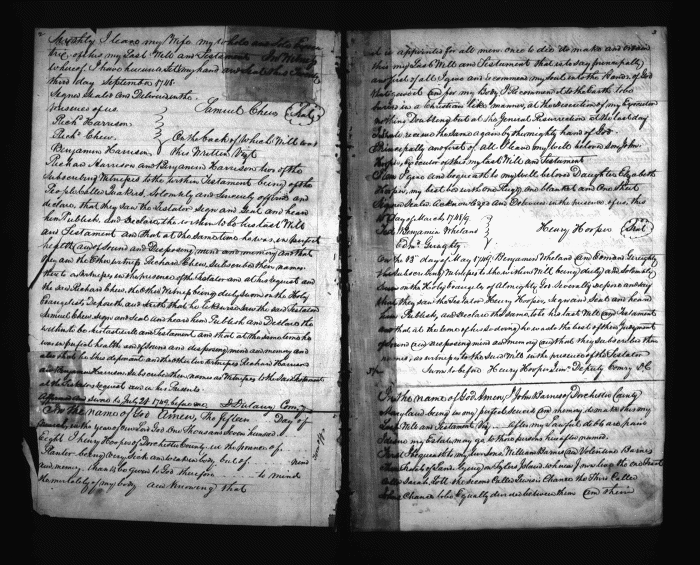 I leave my Wife my whole and Sole Execu
trix of this my Last Will and Testament In Witness
whereof I have hereunto Set my hand and Seal this
third day September 1748
Signed Sealed and Delivered in the
presence of us. Samuel Chew (Seal)
Richd. Harrison
Richd. Chew On the back of which Will was
Benjamin Harrison this Written Vizt
Richard Harrison and Benjamin Harrison two of the
Subscribing Witnesses to the within Testament being of the
People called Quakers Solemnly and Sincerely affirm and
declare, that they saw the Testator Sign and Seal and heard
him Publish, and Declare, the within to be his last Will
and Testament and that at the Same time he was in perfect
health and of Sound and Disposing mind and memory and that
they and the other witness Richard Chew Subscribed their names
thereto as Witnesses in the presence of the Testator and at his request and
the said Richard Chew, the other Witness being duly sworn on the Holy
Evangelists Deposeth and saith that he likewise saw the said Testator
Samuel Chew Sign and Seal and heard him Publish and Declare the
within to be his last Will and Testament and that at the same time he
was in perfect health and of Sound and disposing mind and memory and
also that he this deponent and the other two witnesses Richard Harrison
and Benjamin Harrison Subscribed their names as Witnesses to the said Testament
at the Testator's request and in his Presence
Affirmed and sworn to July 24 1749 before me
In the name of God Amen, The fifteen Day of
in the year of our Lord God One Thousand Seven hundred
Eight I Henry Hooper of Dorchester County in the province of
Planter being very Sick and weak in body but of mind
and memory thanks be given to God therefore to mind
the mortality of my body and knowing that
it is appointed for all men once to die do make and ordain
this my Last Will and Testament that is to say principally
and first of all I give and recommend my Soul into the Hands of God
that gave it and for my Body I recommend to the Earth to be
buried in a Christian like manner, at the discretion of my Executor
nothing Doubting but at the General Resurrection at the last day
I shall receive the Same again by the mighty hand of God.
Principally and first of all I leave my well beloved Son John
Hooper, Executor of this my last Will and Testament
I give and bequeath to my well beloved Daughter Elizabeth
Hooper, my best bed with one Rugg one blanket and One Sheet
Signed Sealed acknowledged and Delivered in the presence of us, this
Day of March 1748/9
Test Benjamin Wheland Henry Hooper (Seal)
Edmd. Geraghty
On the 15 day of May 1749 Benjamin Wheland and Edmond Geraghty
the Subscribing Witnesses to the within Will being duly and Solemnly
Sworn on the Holy Evangels of Almighty God Severally depose and say
that they saw the Testator Henry Hooper, Sign and Seal and heard
him Publish, and Declare the Same to be his last Will and Testament
and that at the time of his so doing he was to the best of their Judgment
of Sound and disposing mind and memory and that they Subscribed their
names, as witnesses to the Said Will in the presence of the Testator
Sworn to before Henry Hooper Junr. Deputy Comry D: C
In the name of God Amen I John Barnes of Dorchester County
Maryland being in my perfect Sence and memory do make this my
Last Will and Testament Viz. after my lawful debts are paid
I desire my Estate may go to the persons hereafter named.
First I bequeath to my two Sons William Barnes and Valentine Barnes
called Sarah Lott the Second Called the Third Called
Chance to be Equally divided between them and their